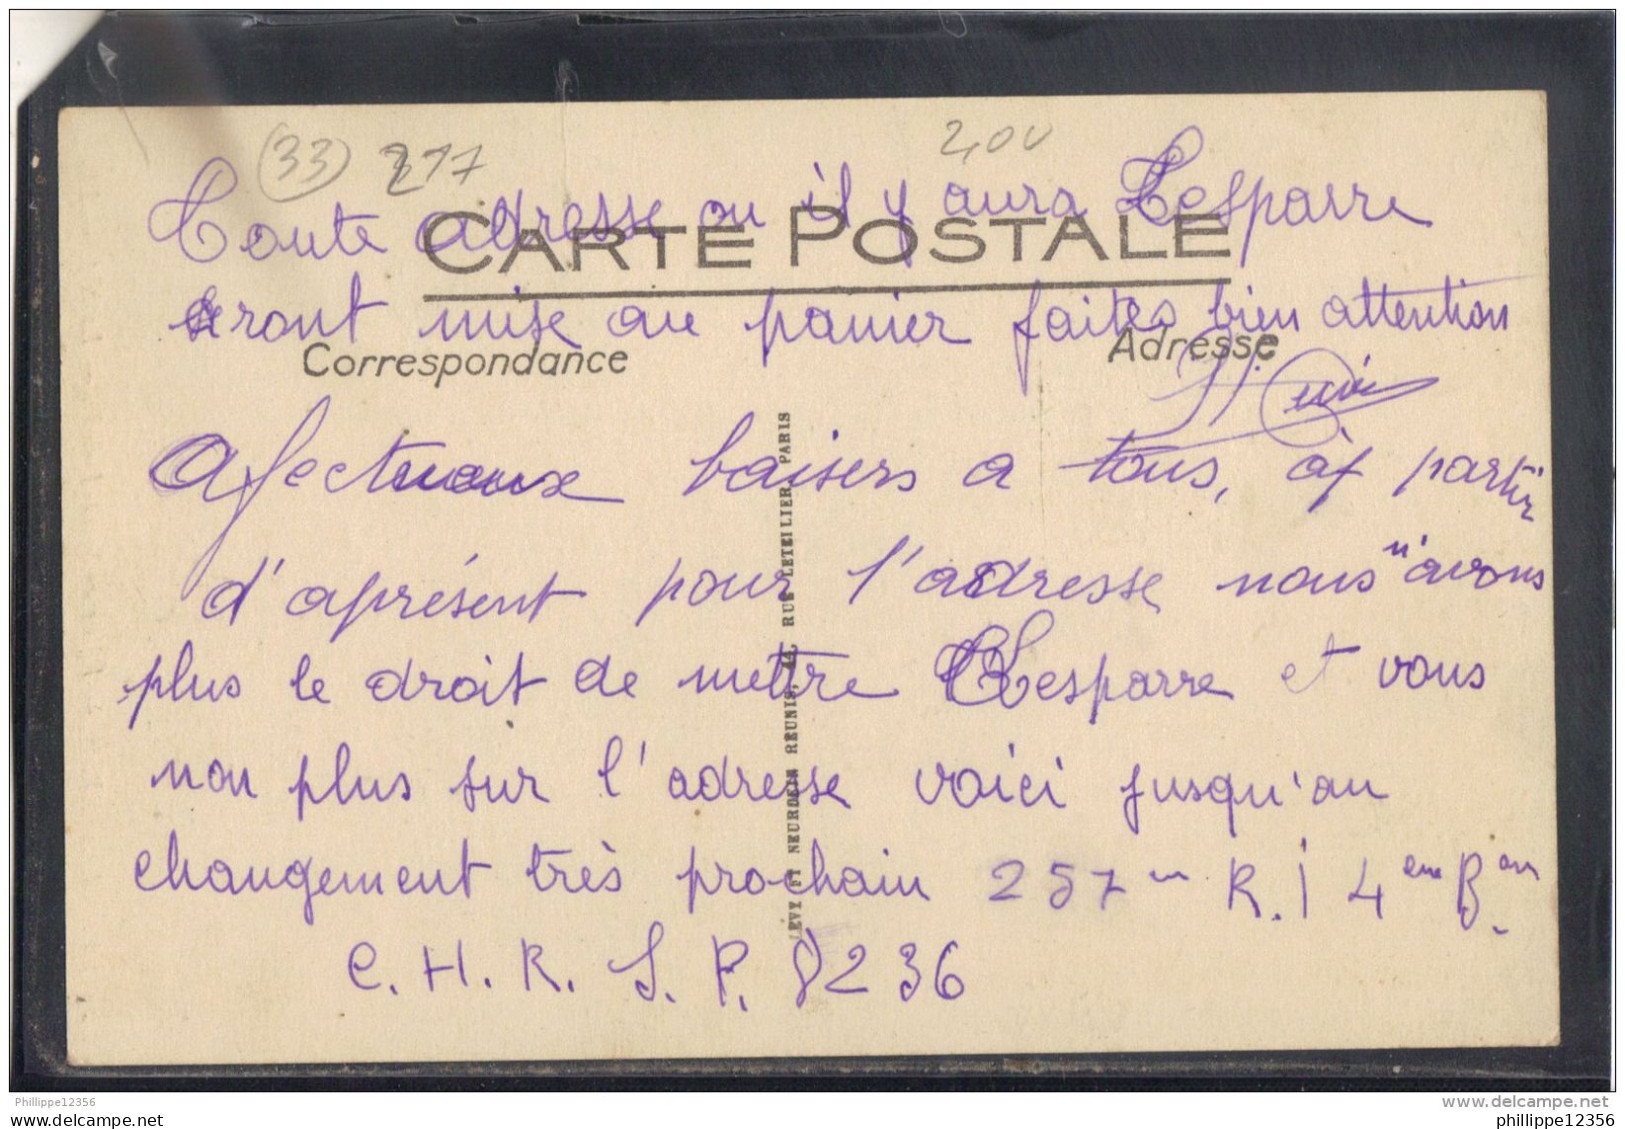 (33) 217
2,00
Toute adresse ou il y aura Lesparre
CARTE POSTALE
seront mise au panier faites bien attention
Correspondance
Adresse
Afectueux baisers a tous, à partir
d'aprésent pour l'adresse nous n'avons
plus le droit de mettre Lesparre et vous
non plus sur l'adresse voici jusqu'au
changement très prochain 257 R.I 4eme Bon
C.H.R. S.P. 8236
LÉVY ET NEURDEIN RÉUNIS, 44, RUE LETELLIER, PARIS
Philippe12356
www.delcampe.net
Phillippe12356
phillippe12356